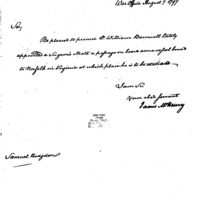 War Office August 9 1797
Sir,
Be pleased to procure Dr William Dunnell lately
appointed a Surgeons Mate a passage on board some vessel bound
to Norfolk in Virginia at which place he is to be
I am Sir
Your obed servant
James McHenry
Samuel Hodgdon